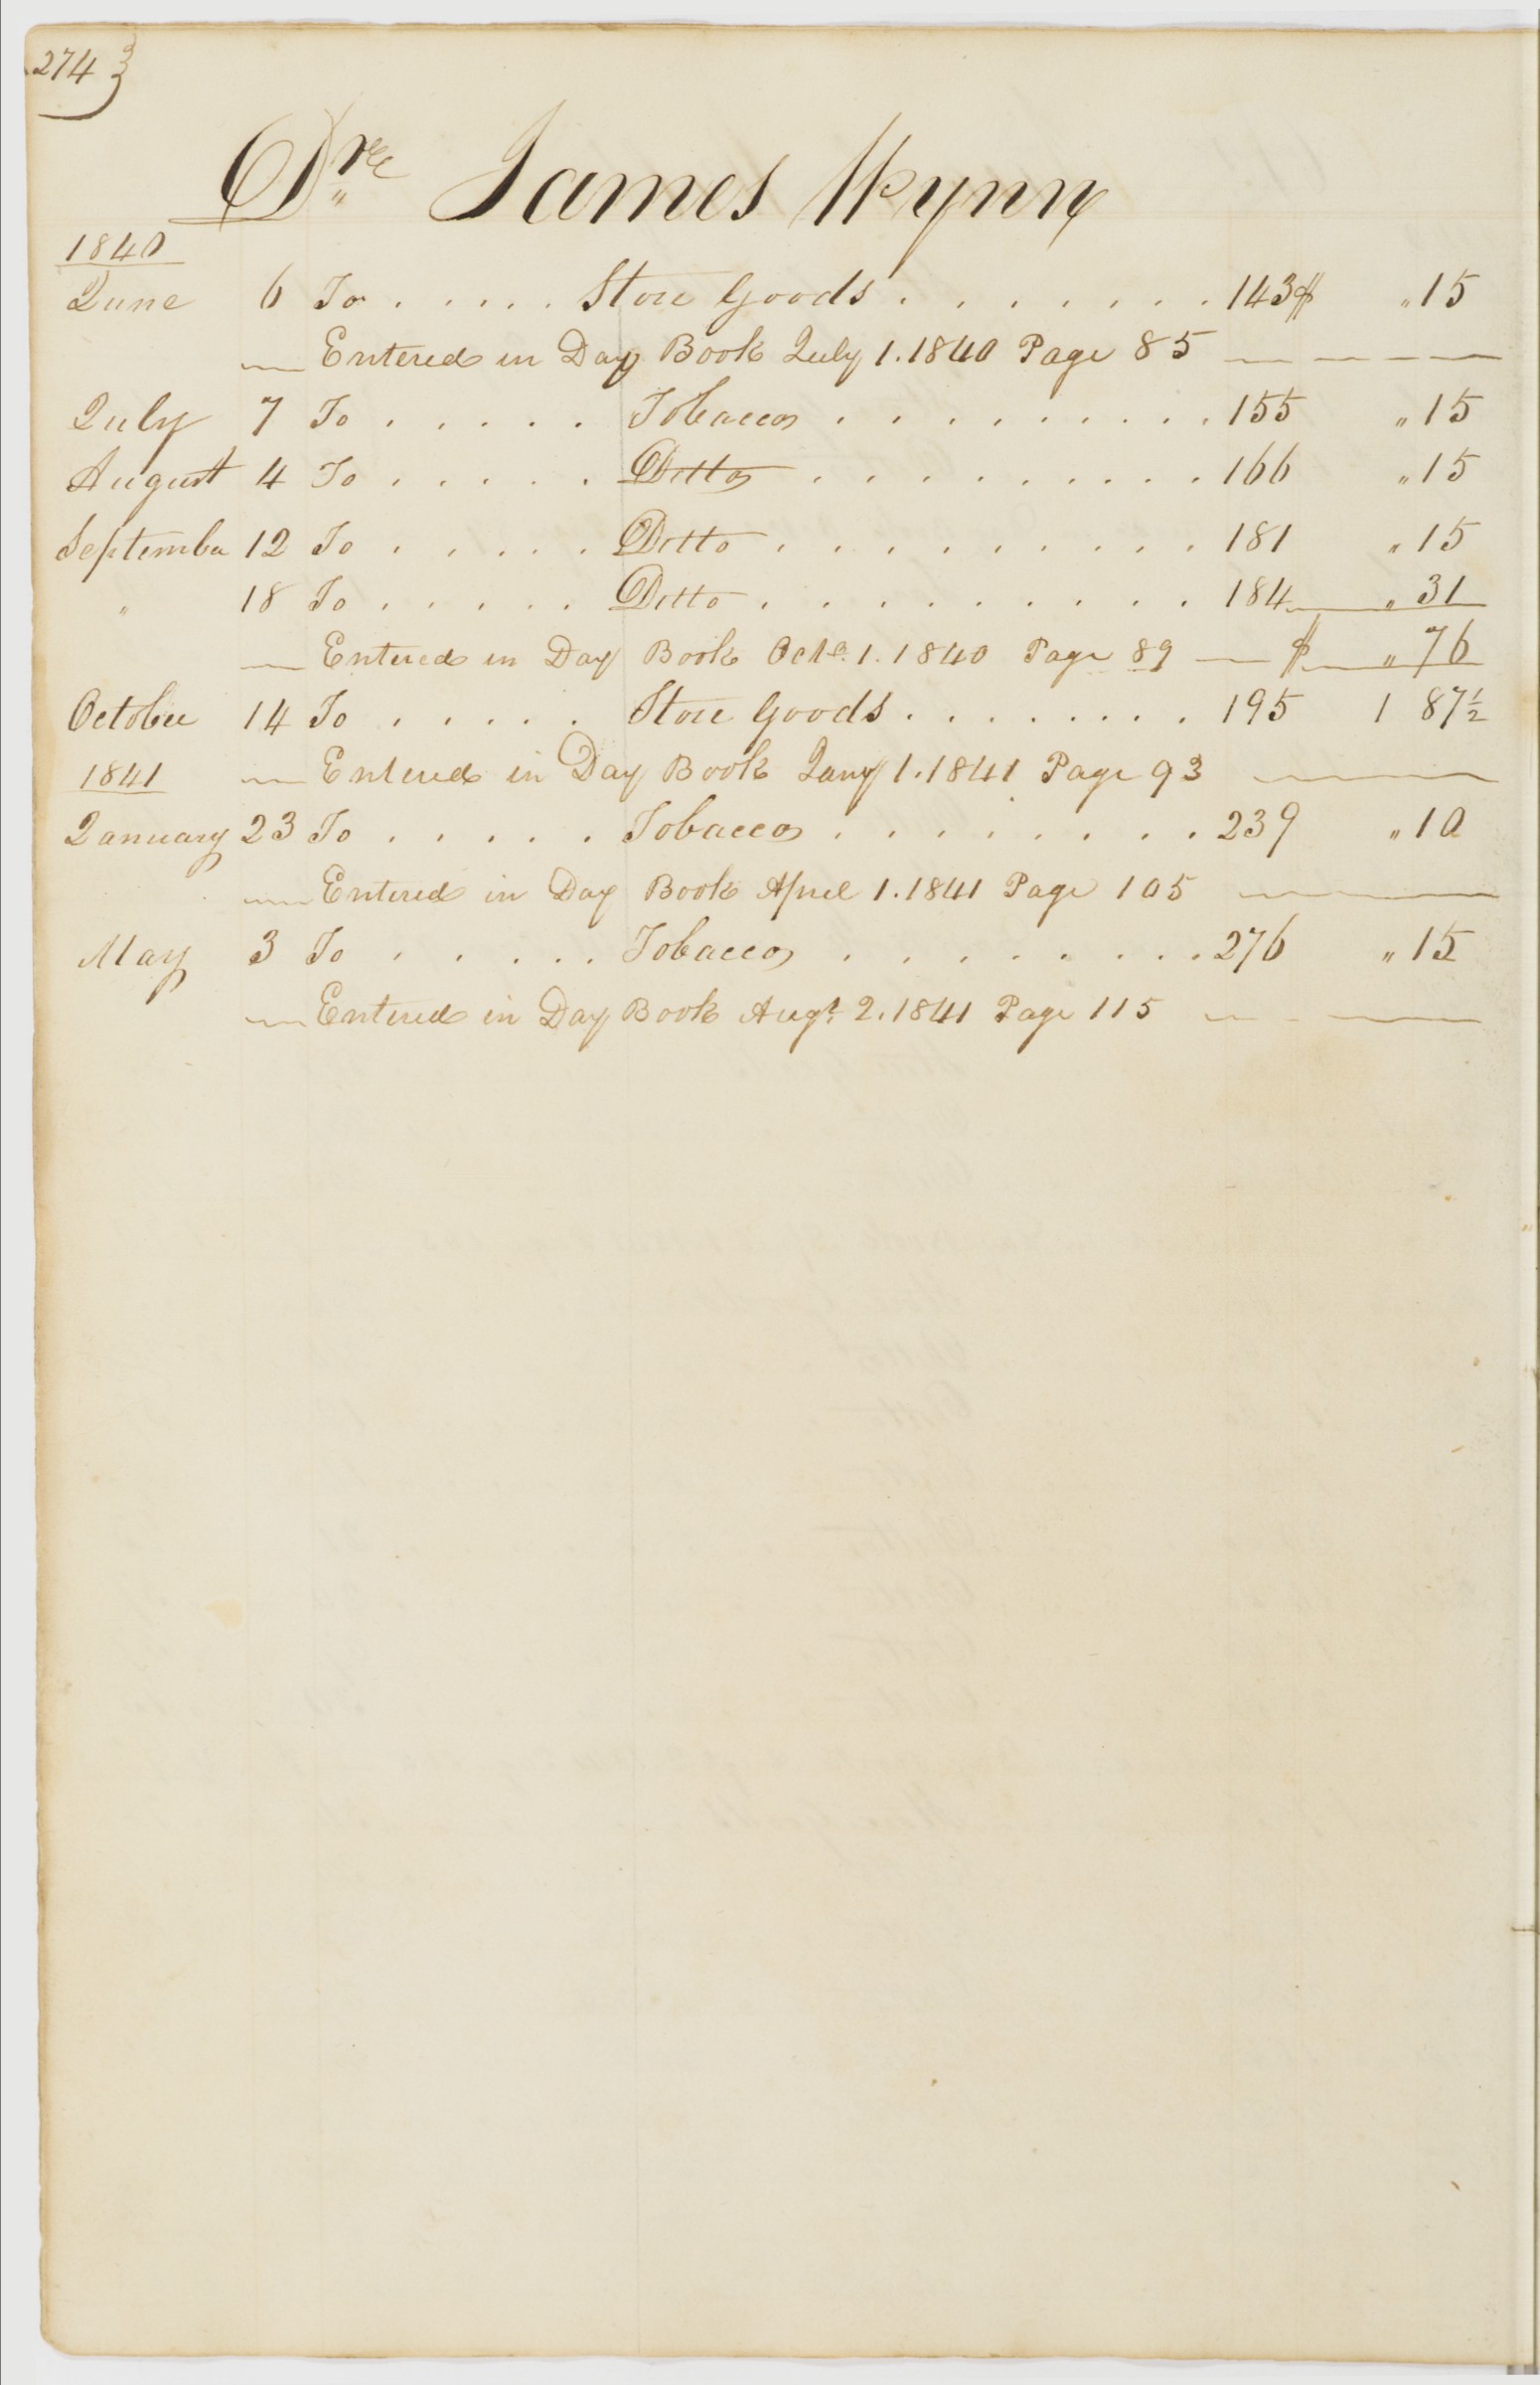 274
Dre James Wynn
1840
June 6 To . . . . . Store Goods . . . . . . . 143 $ " 15
Entered in Day Book July 1. 1840 Page 85
July 7 To . . . . . Tobacco . . . . . . . . . 155 " 15
August 4 To . . . . . Ditto . . . . . . . . . 166 " 15
September 12 To . . . . . Ditto . . . . . . . . . 181 " 15
" 18 To . . . . . Ditto . . . . . . . . . 184 " 31
Entered in Day Book Octe. 1. 1840 Page 89 — $ " 76
October 14 To . . . . . Store Goods . . . . . . . 195 1 87½
1841 — Entered in Day Book Jany 1. 1841 Page 93
January 23 To . . . . . Tobacco . . . . . . . . . 239 " 10
Entered in Day Book April 1. 1841 Page 105
May 3 To . . . . . Tobacco . . . . . . . . . 276 " 15
Entered in Day Book Augt. 2. 1841 Page 115